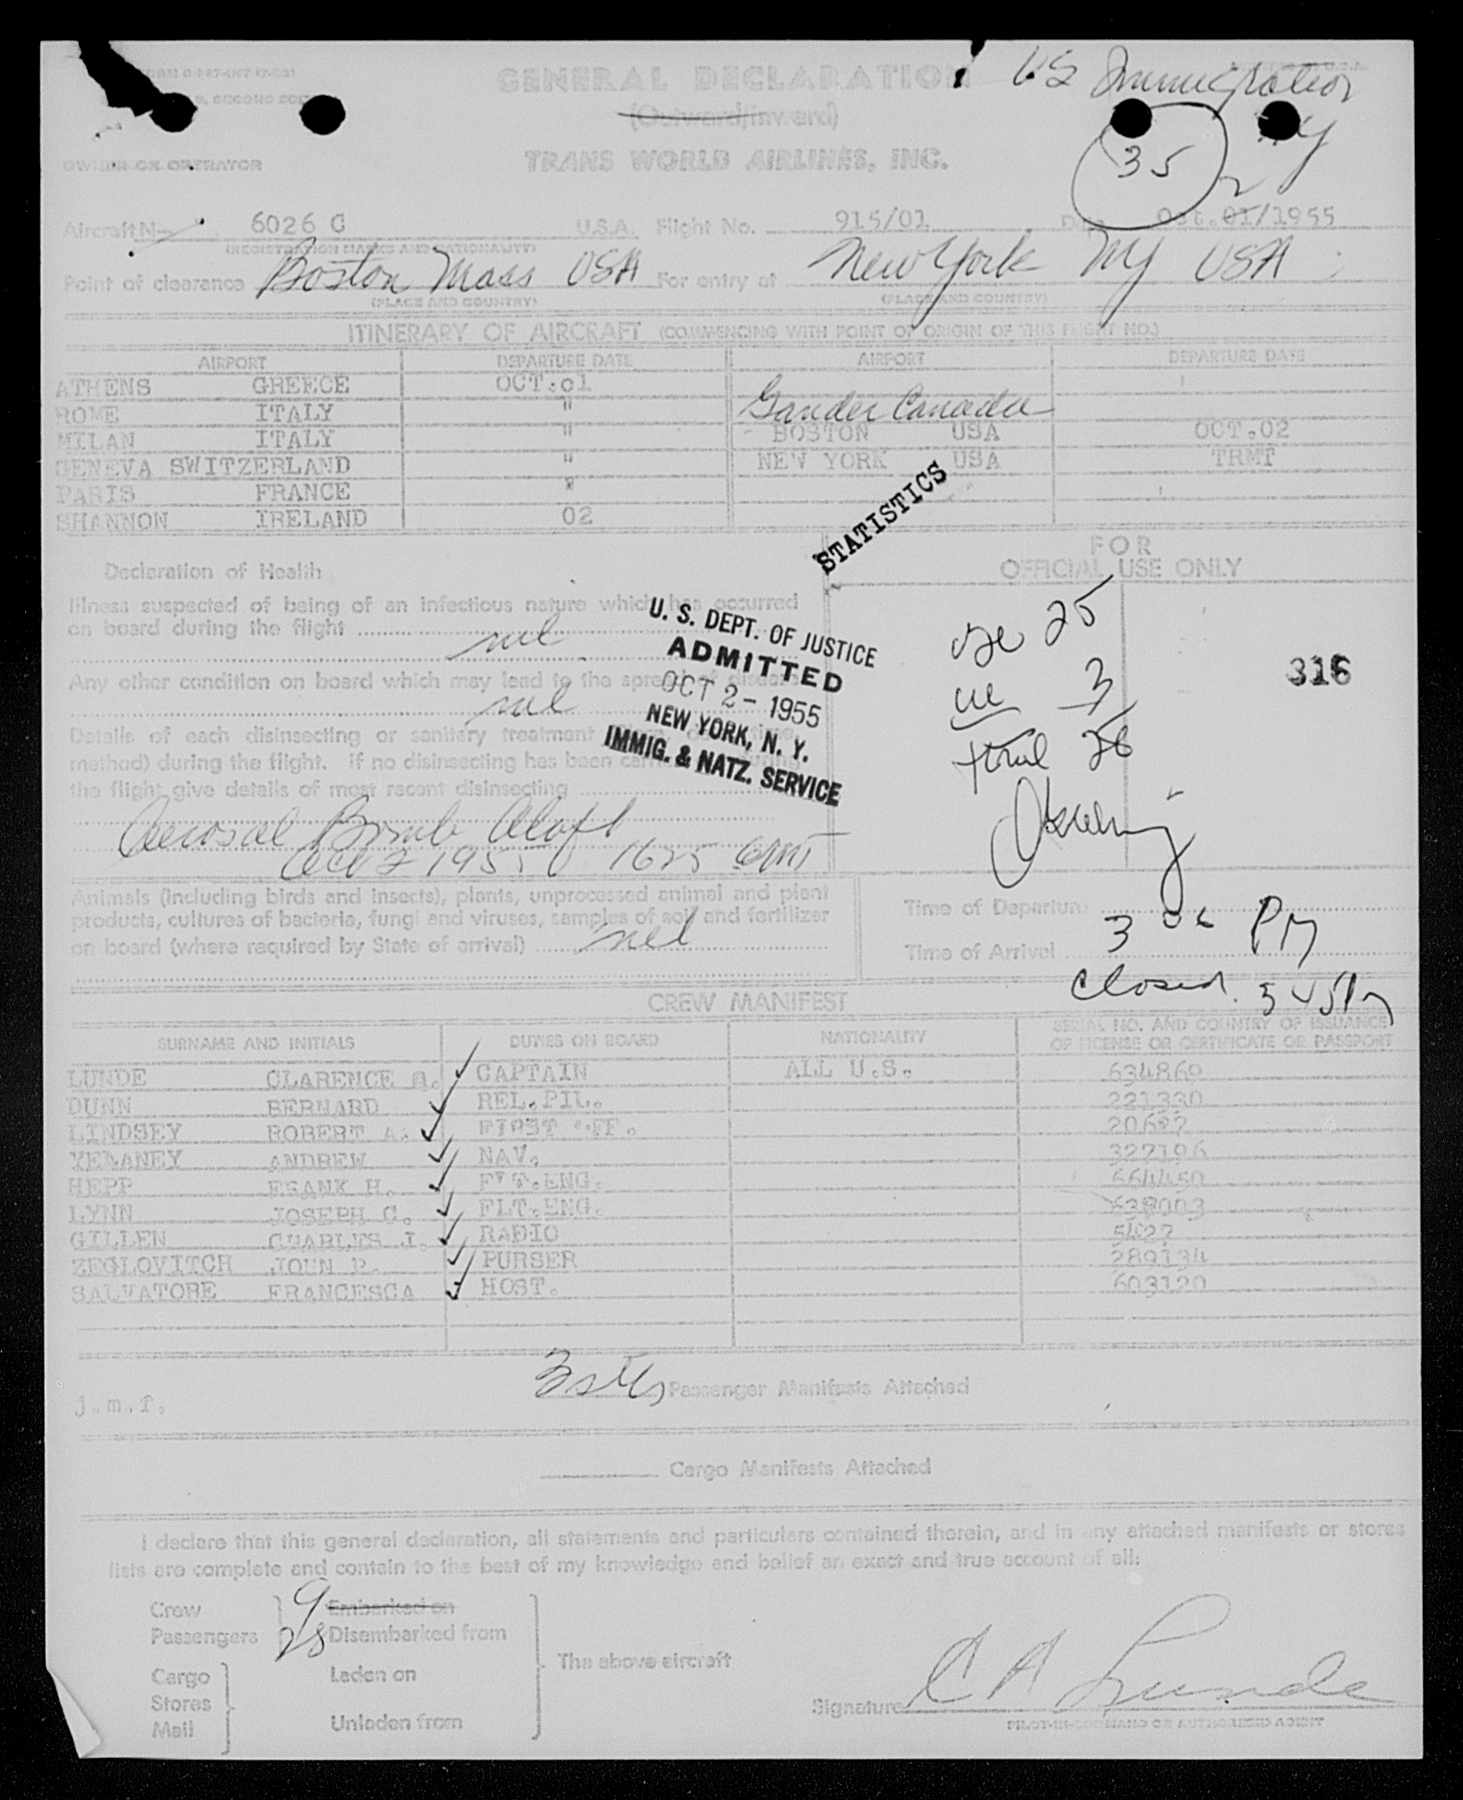 GENERAL DECLARATION
US Immigration
(Outward/Inward)
NY
35
OWNER OR OPERATOR
TRANS WORLD AIRLINES, INC.
Aircraft N- 6026 C U.S.A. Flight No. 915/01 Date Oct. 01/1955
2
(REGISTRATION MARKS AND NATIONALITY)
Point of clearance Boston Mass USA For entry at New York NY USA
(PLACE AND COUNTRY) (PLACE AND COUNTRY)
ITINERARY OF AIRCRAFT (COMMENCING WITH POINT OF ORIGIN OF THIS FLIGHT NO.)
AIRPORT DEPARTURE DATE AIRPORT DEPARTURE DATE
ATHENS GREECE OCT.01
ROME ITALY " Gander Canada
MILAN ITALY " BOSTON USA OCT.02
GENEVA SWITZERLAND " NEW YORK USA TRMT
PARIS FRANCE "
SHANNON IRELAND 02
STATISTICS
FOR
OFFICIAL USE ONLY
Declaration of Health
Illness suspected of being of an infectious nature which has occurred
on board during the flight nil
Any other condition on board which may lead to the spread of disease
nil
Details of each disinsecting or sanitary treatment
method) during the flight. If no disinsecting has been carried out during
the flight give details of most recent disinsecting
Aerosol Bomb Aloft
Oct 2 1955 1625 GMT
U. S. DEPT. OF JUSTICE
ADMITTED
OCT 2 - 1955
NEW YORK, N. Y.
IMMIG. & NATZ. SERVICE
25
3
total 28
316
Animals (including birds and insects), plants, unprocessed animal and plant
products, cultures of bacteria, fungi and viruses, samples of soil and fertilizer
on board (where required by State of arrival) nil
Time of Departure
Time of Arrival 3 06 PM
Closed 345 Pm
CREW MANIFEST
SURNAME AND INITIALS DUTIES ON BOARD NATIONALITY SERIAL NO. AND COUNTRY OF ISSUANCE
OF LICENSE OR CERTIFICATE OR PASSPORT
LUNDE CLARENCE A. CAPTAIN ALL U.S. 634860
DUNN BERNARD REL.PIL. 221330
LINDSEY ROBERT A. FIRST OFF. 20687
YEMANEY ANDREW NAV. 327196
HEPP FRANK H. FLT.ENG. 664450
LYNN JOSEPH C. FLT.ENG. 638003
GILLEN CHARLES J. RADIO 5427
ZEGLOVITCH JOHN P. PURSER 289134
SALVATORE FRANCESCA HOST. 603120
3 sets Passenger Manifests Attached
j.m.f.
Cargo Manifests Attached
I declare that this general declaration, all statements and particulars contained therein, and in any attached manifests or stores
lists are complete and contain to the best of my knowledge and belief an exact and true account of all:
Crew 9 Embarked on
Passengers 28 Disembarked from
The above aircraft
Cargo Laden on
Stores
Mail Unladen from
Signature C A Lunde
PILOT-IN-COMMAND OR AUTHORISED AGENT